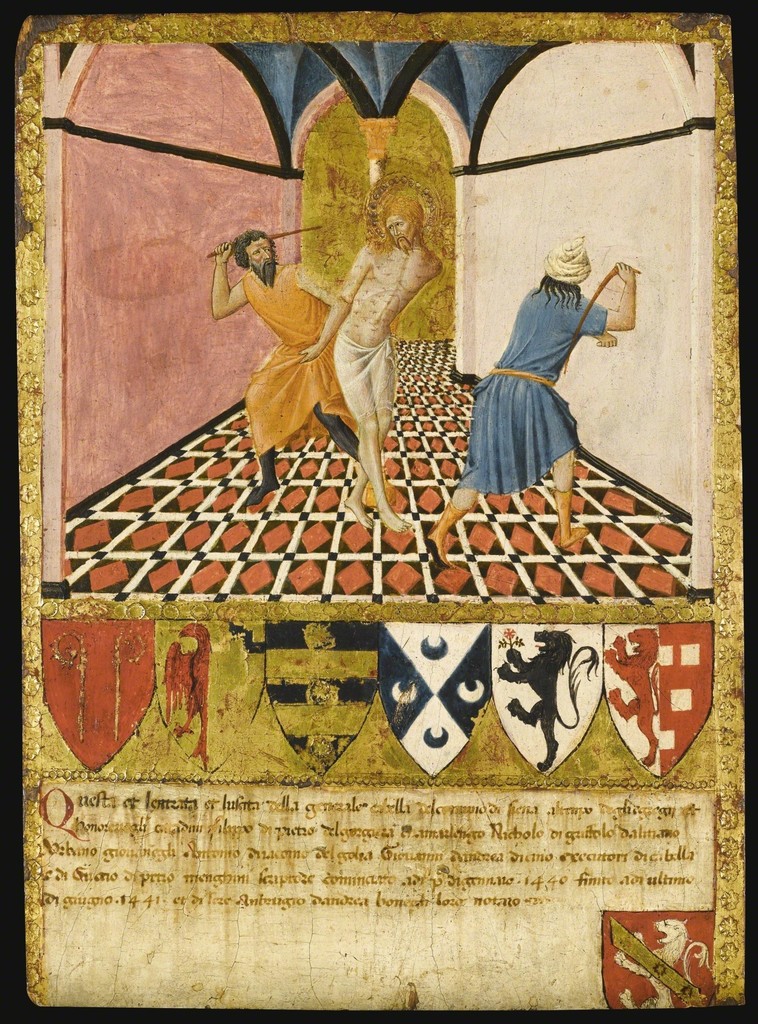 Questa et lentrata et luscita della generale cabella del comuno di siena al tempo degli egregi et
honorevegli citadini filippo di pietro del 
camarlengo Nicholo di 
urbano giovanegli Antonio di Jacomo del golia Giovanni dandrea executori di cabella
e di Guccio di petro menghini scriptore cominciato adi p° di gennaio .1440. finito adi ultimo
di giugno .1441. et di Ambrugio dandrea bonechi loro notaro